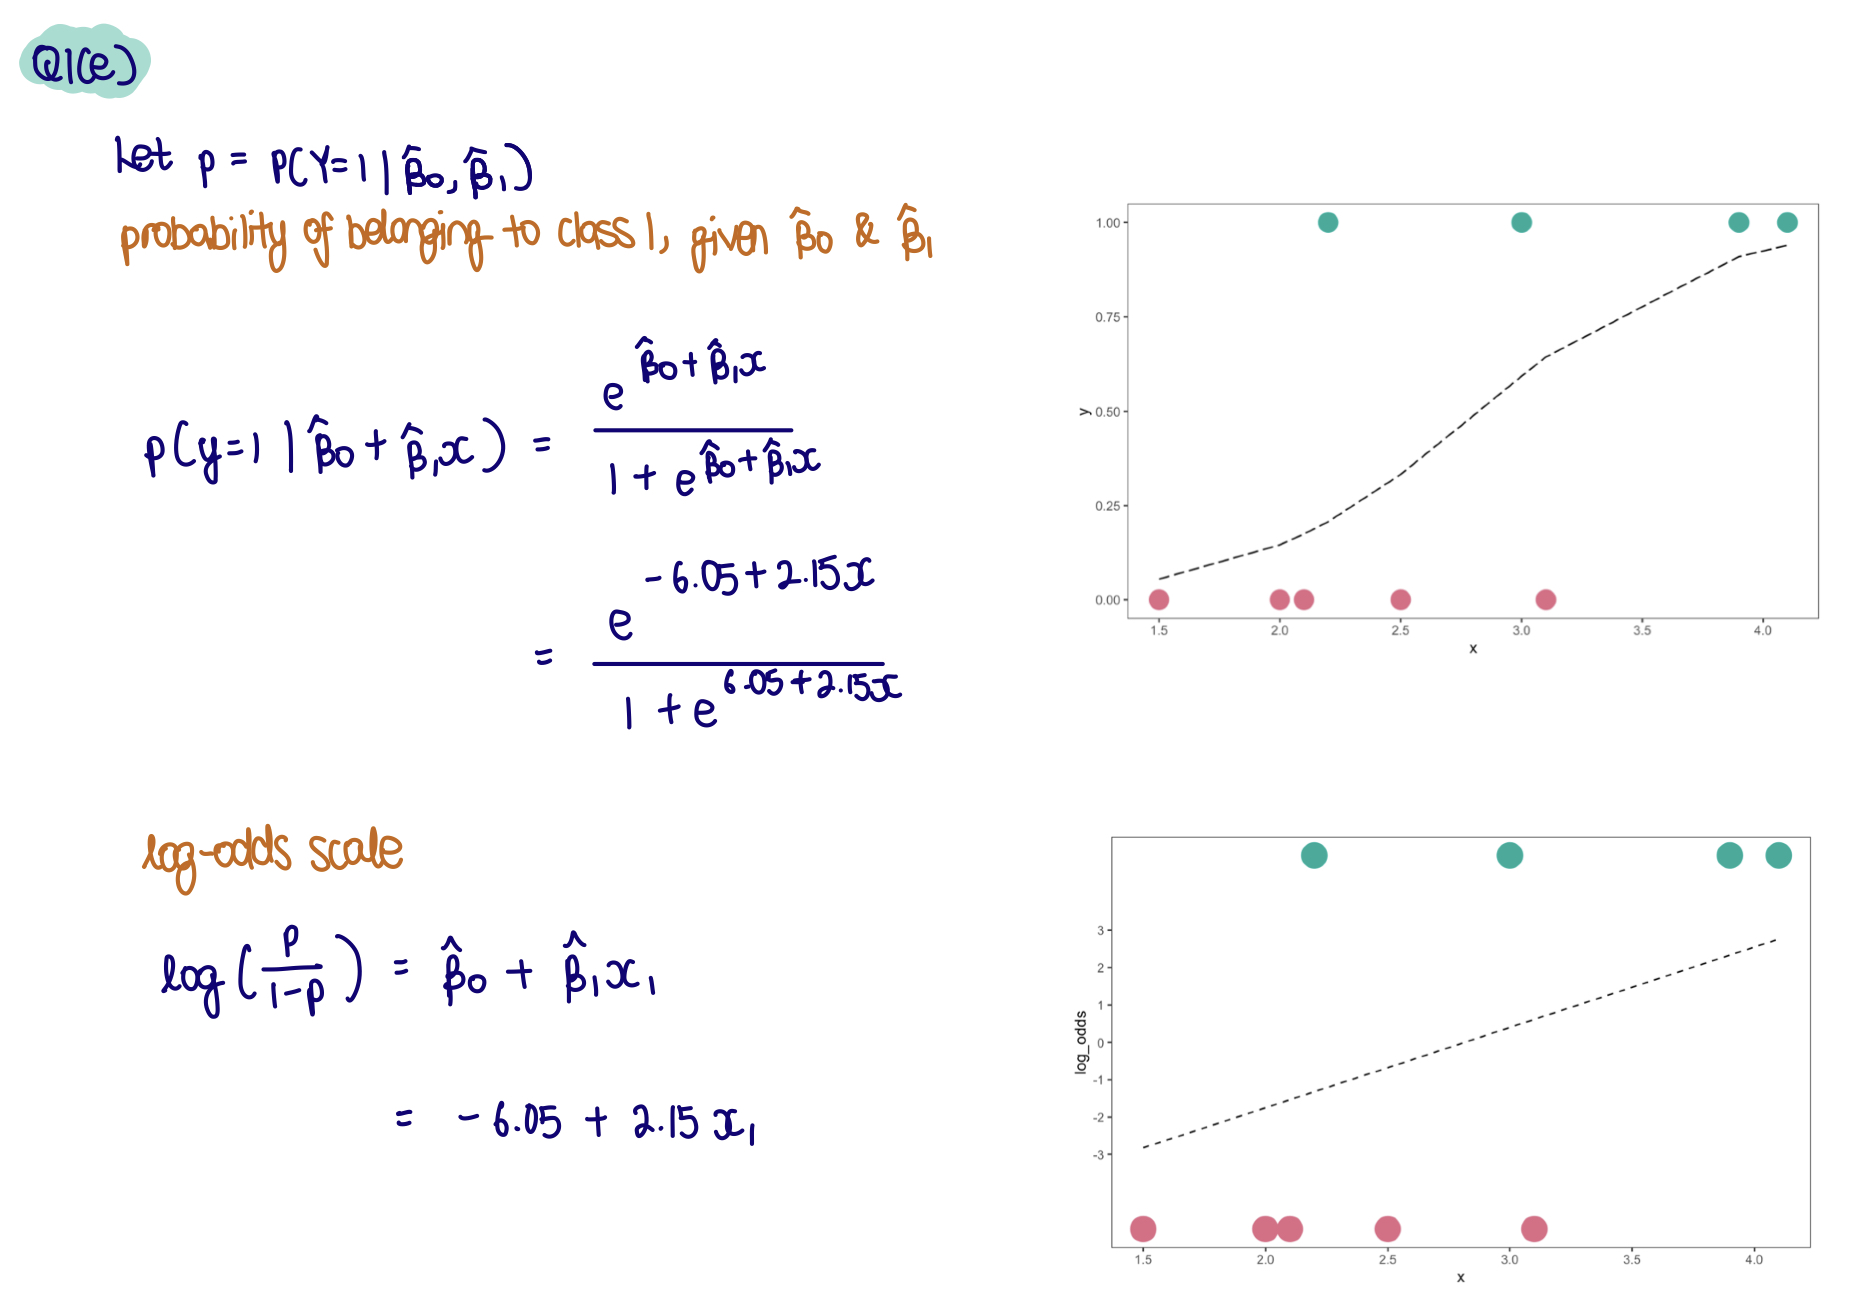 Q1(e)
Let p = P(Y=1 | β̂0, β̂1)
probability of belonging to class 1, given β̂0 & β̂1
p(y=1 | β̂0 + β̂1x) = e^(β̂0 + β̂1x) / (1 + e^(β̂0 + β̂1x))
= e^(-6.05 + 2.15x) / (1 + e^(6.05 + 2.15x))
log-odds scale
log(p/(1-p)) = β̂0 + β̂1x1
= -6.05 + 2.15 x1
1.00
0.75
0.50
0.25
0.00
y
1.5 2.0 2.5 3.0 3.5 4.0
x
3
2
1
0
-1
-2
-3
log_odds
1.5 2.0 2.5 3.0 3.5 4.0
x